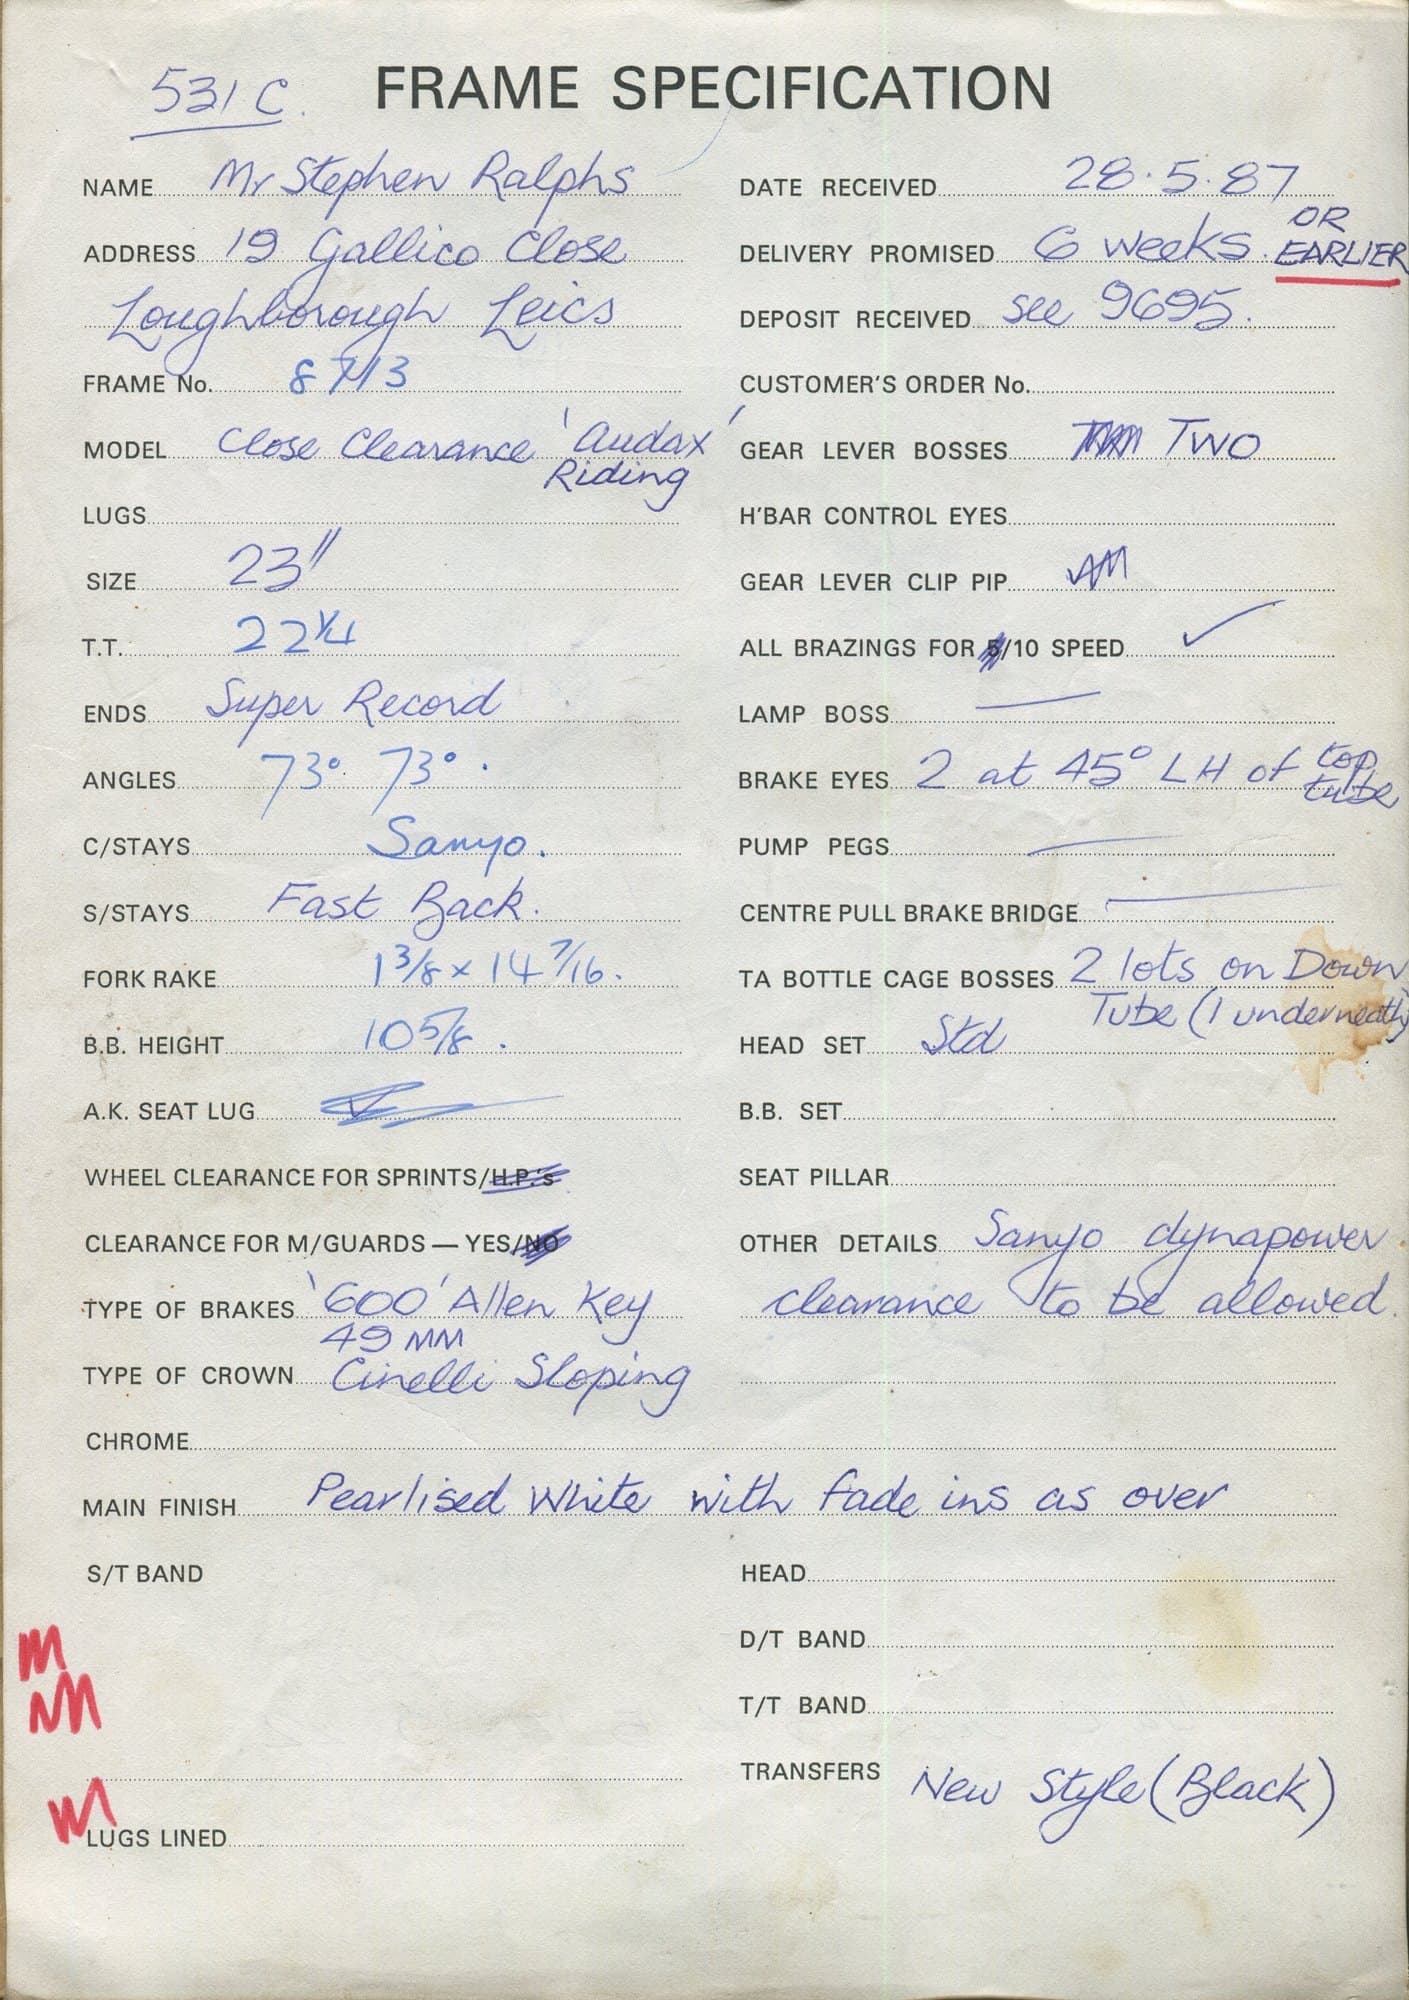 531 C.
FRAME SPECIFICATION
NAME Mr Stephen Ralphs
ADDRESS 19 Gallico Close
Loughborough Leics
FRAME No. 8713
MODEL Close Clearance 'Audax'
Riding
LUGS
SIZE 23"
T.T. 22 1/4
ENDS Super Record
ANGLES 73° 73°.
C/STAYS Sanyo.
S/STAYS Fast Back.
FORK RAKE 1 3/8 x 14 7/16.
B.B. HEIGHT 10 5/8.
A.K. SEAT LUG
WHEEL CLEARANCE FOR SPRINTS/H.P.'s
CLEARANCE FOR M/GUARDS — YES/NO
TYPE OF BRAKES '600' Allen Key
49 MM
TYPE OF CROWN Cinelli Sloping
DATE RECEIVED 28.5.87
OR
DELIVERY PROMISED 6 weeks. EARLIER
DEPOSIT RECEIVED see 9695.
CUSTOMER'S ORDER No.
GEAR LEVER BOSSES TWO
H'BAR CONTROL EYES
GEAR LEVER CLIP PIP
ALL BRAZINGS FOR 5/10 SPEED ✓
LAMP BOSS —
BRAKE EYES 2 at 45° LH of top
tube
PUMP PEGS —
CENTRE PULL BRAKE BRIDGE —
TA BOTTLE CAGE BOSSES 2 lots on Down
Tube (1 underneath)
HEAD SET Std
B.B. SET
SEAT PILLAR
OTHER DETAILS Sanyo dynapower
clearance to be allowed.
CHROME
MAIN FINISH Pearlised White with fade ins as over
S/T BAND
LUGS LINED
HEAD
D/T BAND
T/T BAND
TRANSFERS New Style (Black)